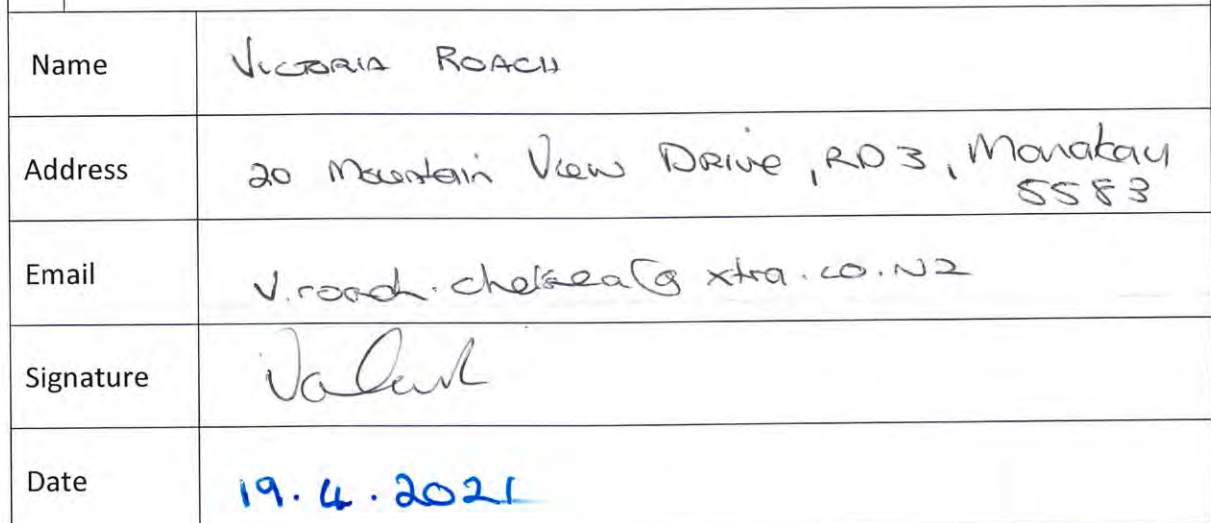 Name VICTORIA ROACH
Address 20 Mountain View Drive, RD3, Manakau
5583
Email v.roach.chelsea@xtra.co.nz
Signature
Date 19.4.2021